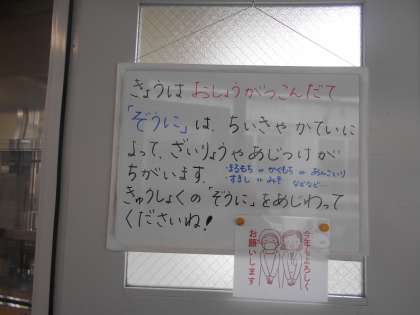 きょうは おしょうがつこんだて
「ぞうに」は、ちいきやかていに
よって、ざいりょうやあじつけが
ちがいます。
・まるもち ⇔ かくもち ⇔ あんこいり
・すまし ⇔ みそ などなど
きゅうしょくの「ぞうに」をあじわって
くださいね！
今年もよろしく
お願いします